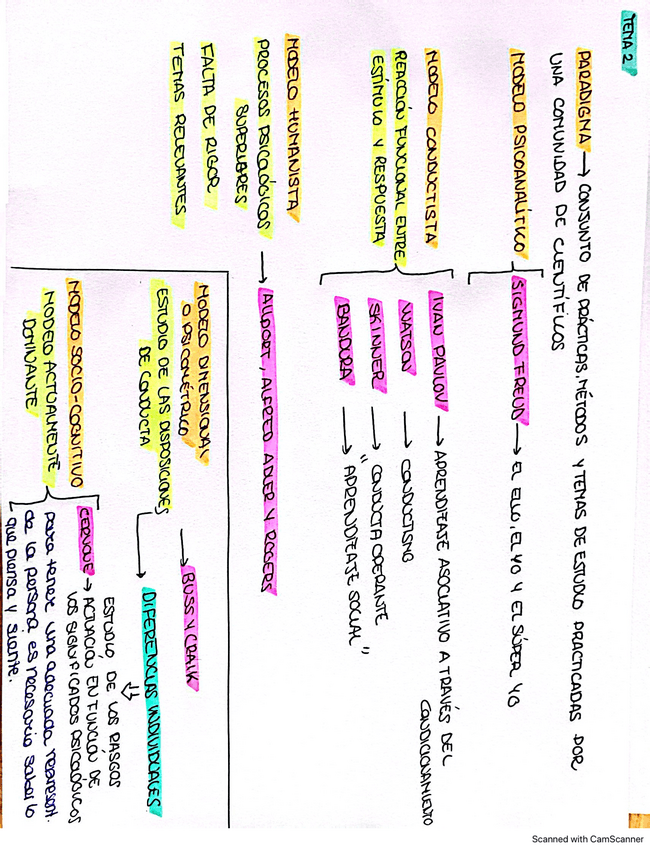 TEMA 2
PARADIGMA → CONJUNTO DE PRÁCTICAS, MÉTODOS Y TEMAS DE ESTUDIO PRACTICADAS POR
UNA COMUNIDAD DE CIENTÍFICOS
MODELO PSICOANALÍTICO
SIGMUND FREUD → EL ELLO, EL YO Y EL SÚPER YO
MODELO CONDUCTISTA
REACCIÓN FUNCIONAL ENTRE
ESTÍMULO Y RESPUESTA
IVAN PAVLOV → APRENDIZAJE ASOCIATIVO A TRAVÉS DEL
CONDICIONAMIENTO
WATSON → CONDUCTISMO
SKINNER → "CONDUCTA OPERANTE"
BANDURA → APRENDIZAJE SOCIAL
MODELO HUMANISTA
PROCESOS PSICOLÓGICOS → ALLPORT, ALFRED ADLER Y ROGERS
SUPERIORES
FALTA DE RIGOR
TEMAS RELEVANTES
MODELO DIMENSIONAL
O PSICOMÉTRICO → BUSS Y CRAIK
ESTUDIO DE LAS DISPOSICIONES
DE CONDUCTA
DIFERENCIAS INDIVIDUALES
ESTUDIO DE LOS RASGOS
MODELO SOCIO-COGNITIVO
MODELO ACTUALMENTE
DOMINANTE
CERVONE → ACTUACIÓN EN FUNCIÓN DE
LOS SIGNIFICADOS PSICOLÓGICOS
para tener una adecuada represent.
de la persona es necesario saber lo
que piensa y siente.
Scanned with CamScanner